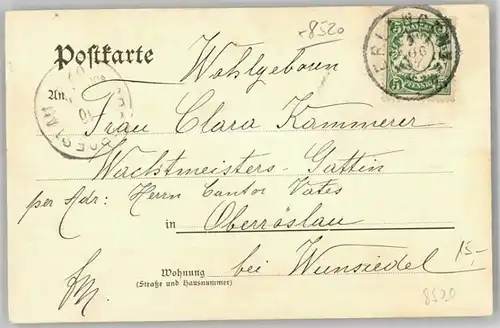 -8520
Postkarte
Wohlgeboren
An
Frau Clara Kammerer
Wachtmeisters-Gattin
per Adr: Herrn Cantor Vates
in Oberröslau
Wohnung
(Straße und Hausnummer)
bei Wunsiedel
15,-
8520
5 5
PFENNIG